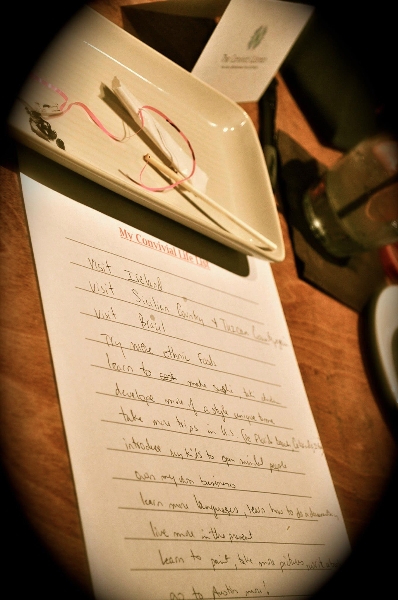 The Convivial
My Convivial Life List
Visit Iceland
Visit Sicilian Country & Tuscan Countryside
Visit Brazil
Try more ethnic food
learn to make sushi
develope more of a style
take more trips in U.S.
introduce my kids to open minded people
own my own business
learn more languages, learn how to do a
live more in the present
learn to paint, take more pictures
go to Austin more!